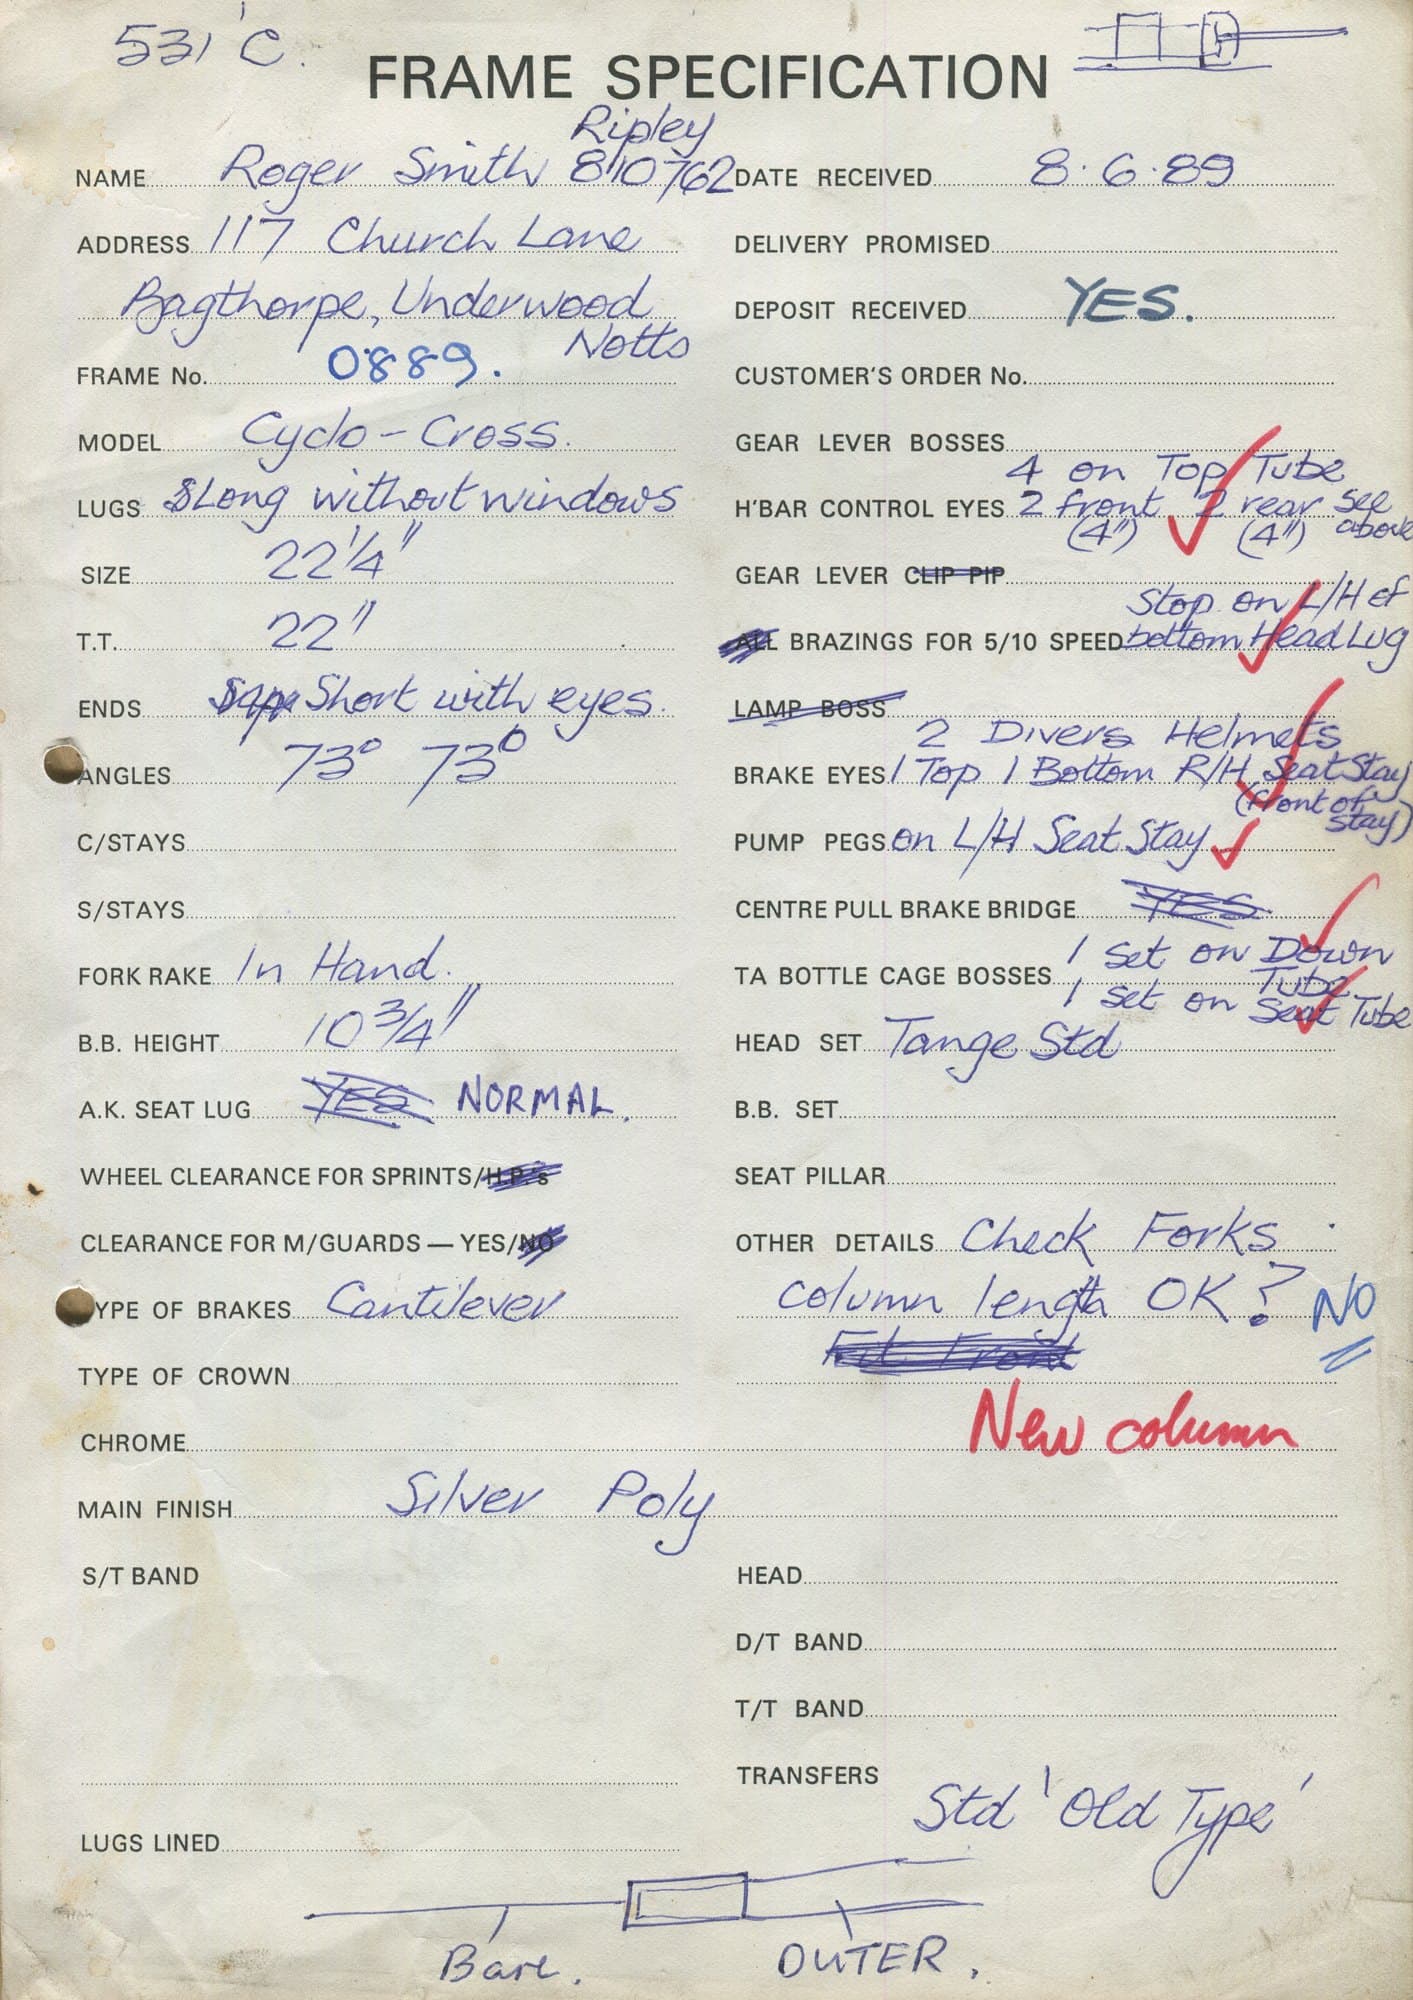 531 'C'.
FRAME SPECIFICATION
Ripley
NAME Roger Smith 810762
ADDRESS 117 Church Lane
Bagthorpe, Underwood
Notts
FRAME No. 0889.
MODEL Cyclo-Cross.
LUGS Long without windows
SIZE 22 1/4"
T.T. 22"
ENDS Short with eyes.
ANGLES 73° 73°
C/STAYS
S/STAYS
FORK RAKE In Hand.
B.B. HEIGHT 10 3/4"
A.K. SEAT LUG YES NORMAL.
WHEEL CLEARANCE FOR SPRINTS/H.P.'s
CLEARANCE FOR M/GUARDS — YES/NO
TYPE OF BRAKES Cantilever
TYPE OF CROWN
CHROME
MAIN FINISH Silver Poly
S/T BAND
LUGS LINED
DATE RECEIVED 8.6.89
DELIVERY PROMISED
DEPOSIT RECEIVED YES.
CUSTOMER'S ORDER No.
GEAR LEVER BOSSES
4 on Top Tube
H'BAR CONTROL EYES 2 front 2 rear see
(4") (4") above
GEAR LEVER CLIP PIP
Stop on L/H of
ALL BRAZINGS FOR 5/10 SPEED bottom Head Lug
LAMP BOSS
2 Divers Helmets
BRAKE EYES 1 Top 1 Bottom R/H Seat Stay
(front of
stay)
PUMP PEGS on L/H Seat Stay
CENTRE PULL BRAKE BRIDGE YES
1 set on Down
TA BOTTLE CAGE BOSSES Tube
1 set on Seat Tube
HEAD SET Tange Std
B.B. SET
SEAT PILLAR
OTHER DETAILS Check Forks
column length OK? NO
Fit Front
New column
HEAD
D/T BAND
T/T BAND
TRANSFERS
Std 'Old Type'
Bare. OUTER.